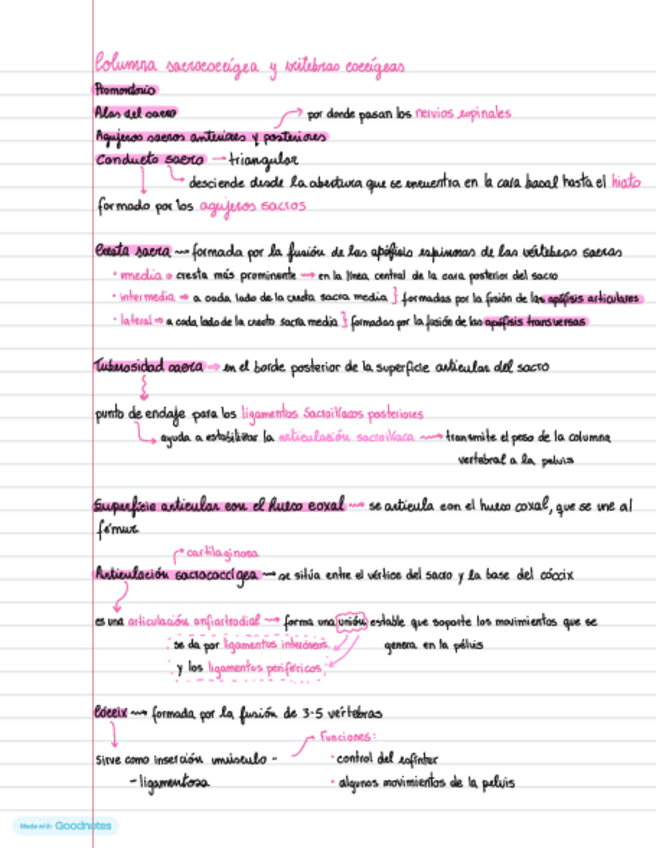 Columna sacrococcígea y vértebras coccígeas
Promontorio
Alas del sacro
por donde pasan los nervios espinales
Agujeros sacros anteriores y posteriores
Conducto sacro → triangular
desciende desde la abertura que se encuentra en la cara basal hasta el hiato
formado por los agujeros sacros
Cresta sacra → formada por la fusión de las apófisis espinosas de las vértebras sacras
• media → cresta más prominente → en la línea central de la cara posterior del sacro
• intermedia → a cada lado de la cresta sacra media } formadas por la fusión de las apófisis articulares
• lateral → a cada lado de la cresta sacra media } formadas por la fusión de las apófisis transversas
Tuberosidad sacra → en el borde posterior de la superficie articular del sacro
punto de enclaje para los ligamentos sacroilíacos posteriores
ayuda a estabilizar la articulación sacroilíaca → transmite el peso de la columna
vertebral a la pelvis
Superficie articular con el hueso coxal → se articula con el hueso coxal, que se une al
fémur
cartilaginosa
Articulación sacrococcígea → se sitúa entre el vértice del sacro y la base del cóccix
es una articulación anfiartrodial → forma una unión estable que soporte los movimientos que se
se da por ligamentos interóseos
genera en la pélvis
y los ligamentos periféricos
Cóccix → formada por la fusión de 3-5 vértebras
Funciones:
Sirve como inserción músculo -
• control del esfínter
- ligamentosa
• algunos movimientos de la pelvis
Made with Goodnotes